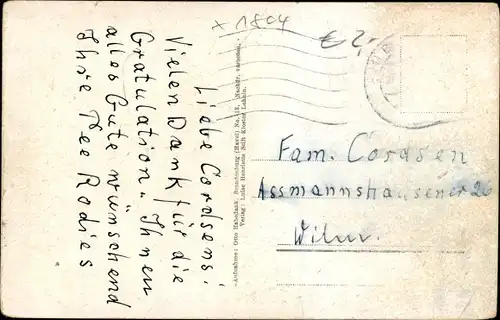 x 1804
€ 2,-
Liebe Cordsens!
Vielen Dank für die
Gratulation. Ihnen
alles Gute wünschend
Ihre Tee Rodies
Aufnahme: Otto Haboland, Brandenburg (Havel) Nachdr. verboten.
Verlag: Luise Henrietta Stift Kloster Lehnin.
Fam. Cordsen
Assmannshausener 20
Wilm.